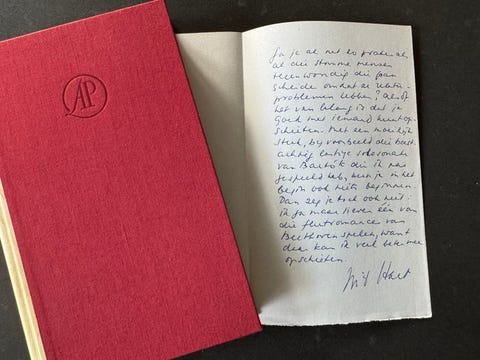 AP
Ga je al net zo praten als
al die stomme mensen
tegenwoordig die gaan
scheiden omdat ze relatie-
problemen hebben? Alsof
het van belang is dat je
goed met iemand kunt op-
schieten. Met een moeilijk
stuk, bijvoorbeeld die
achtige vioolsonate
van Bartók die ik nu
gespeeld heb, kun je in het
begin ook niets beginnen.
Dan zeg je toch ook niet:
ik ga maar liever één van
die romance van
Beethoven spelen, want
daar kan ik veel beter mee
opschieten.
Hart